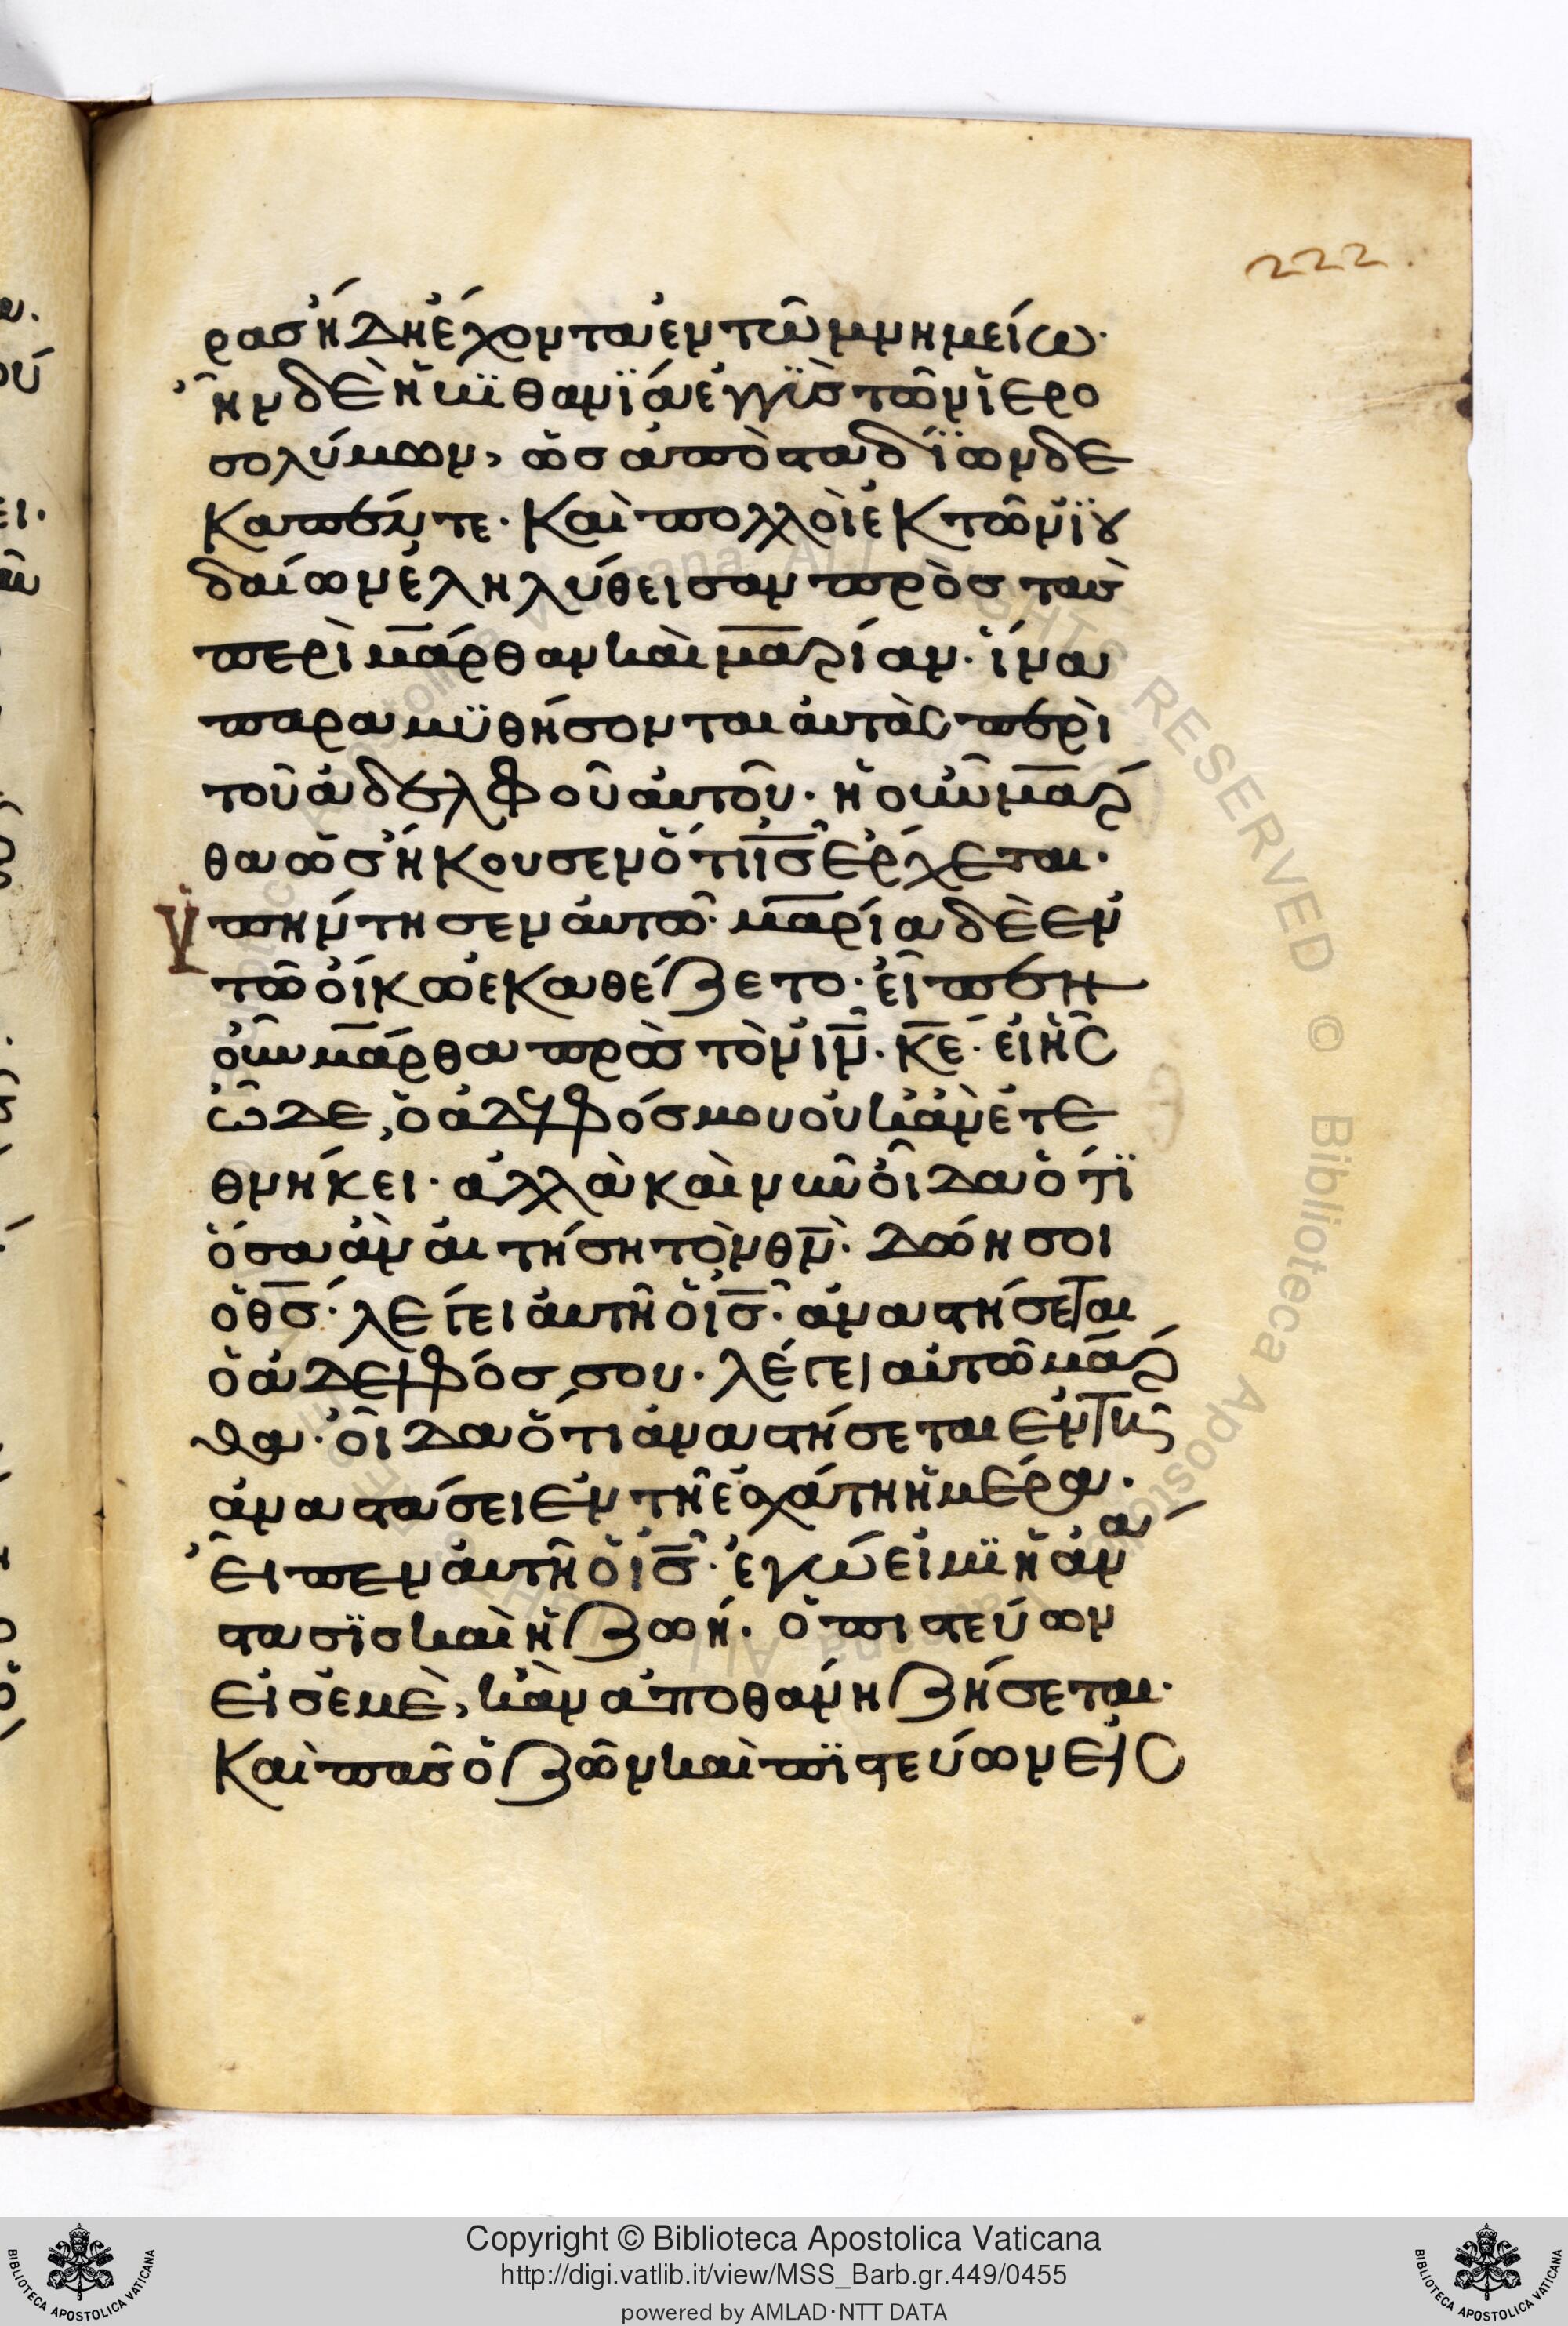 222.
ρας ἤδη ἔχοντα ἐν τῶ μνημείω·
ἦν δὲ ἡ βιθανΐα ἐγγῢς τῶν ἱερο
σολύμων, ὡς ἀπὸ σταδΐων δε
καπέντε· Καὶ πολλοὶ ἐκ τῶν ϊου
δαίων ἐληλύθεισαν πρὸς τὰς
περὶ μάρθαν καὶ μαρίαν· ἵνα
παραμϋθήσονται ἀυτὰς περὶ
τοῦ ἀδελφοῦ ἀυτοῦ· ἡ οὖν μάρ
θα ὡς ἤκουσεν ὅτι ι̅ς̅ ἔρχεται·
Ϋπήντησεν ἀυτῶ· μαρία δὲ ἐν
τῶ οἴκω ἐκαθέζετο· εἶπεν
οὖν μάρθα πρὸς τὸν ι̅ν̅· κ̅ε̅· εἰ ἦς
ὧδε, ὁ ἀδελφός μου οὐκ ἂν ἐτε
θνήκει· ἀλλὰ καὶ νῦν οἶδα ὅτϊ
ὅσα ἂν ἀιτήση τὸν θ̅ν̅· δώη σοι
ὁ θ̅ς̅· λέγει ἀυτῆ ὁ ι̅ς̅· ἀναστήσεται
ὁ ἀδελφός σου· λέγει αὐτῶ μάρ
θα· οἶδα ὅτι ἀναστήσεται ἐν τῆ
ἀναστάσει ἐν τῆ ἐσχάτη ἡμέρα·
εἶπεν ἀυτῆ ὁ ι̅ς̅· ἐγώ εἰμϊ ἡ ἀνά
στασϊς καὶ ἡ ζωή· ὁ πιστεύων
εἰς ἐμὲ, κἂν ἀποθάνη ζήσεται·
Καὶ πᾶς ὁ ζῶν καὶ πϊστεύων εἰς
Copyright © Biblioteca Apostolica Vaticana
http://digi.vatlib.it/view/MSS_Barb.gr.449/0455
powered by AMLAD·NTT DATA
BIBLIOTECA APOSTOLICA VATICANA
BIBLIOTECA APOSTOLICA VATICANA